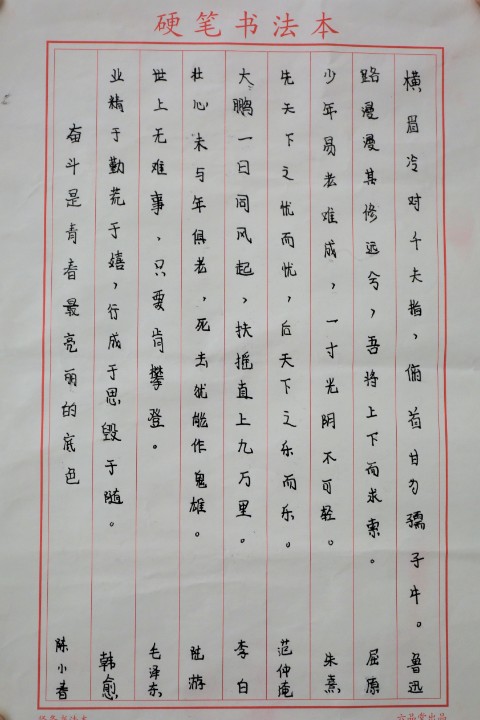 硬笔书法本
横眉冷对千夫指，俯首甘为孺子牛。 鲁迅
路漫漫其修远兮，吾将上下而求索。 屈原
少年易老难成，一寸光阴不可轻。 朱熹
先天下之忧而忧，后天下之乐而乐。 范仲淹
大鹏一日同风起，扶摇直上九万里。 李白
壮心未与年俱老，死去犹能作鬼雄。 陆游
世上无难事，只要肯攀登。 毛泽东
业精于勤荒于嬉，行成于思毁于随。 韩愈
奋斗是青春最亮丽的底色 陈小春
六品堂出品